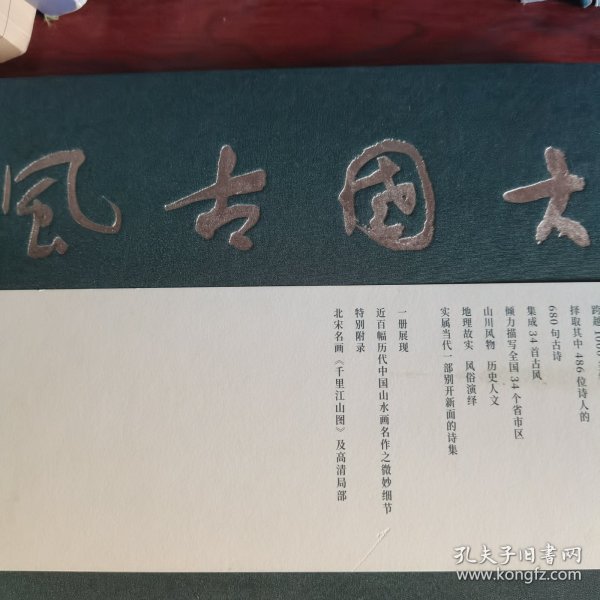 大國古風
跨越1000
择取其中 486 位诗人的
680 句古诗
集成 34 首古风
倾力描写全国 34 个省市区
山川风物 历史人文
地理故实 风俗演绎
实属当代一部别开新面的诗集
一册展现
近百幅历代中国山水画名作之微妙细节
特别附录
北宋名画《千里江山图》及高清局部
孔夫子旧书网
www.kongfz.com